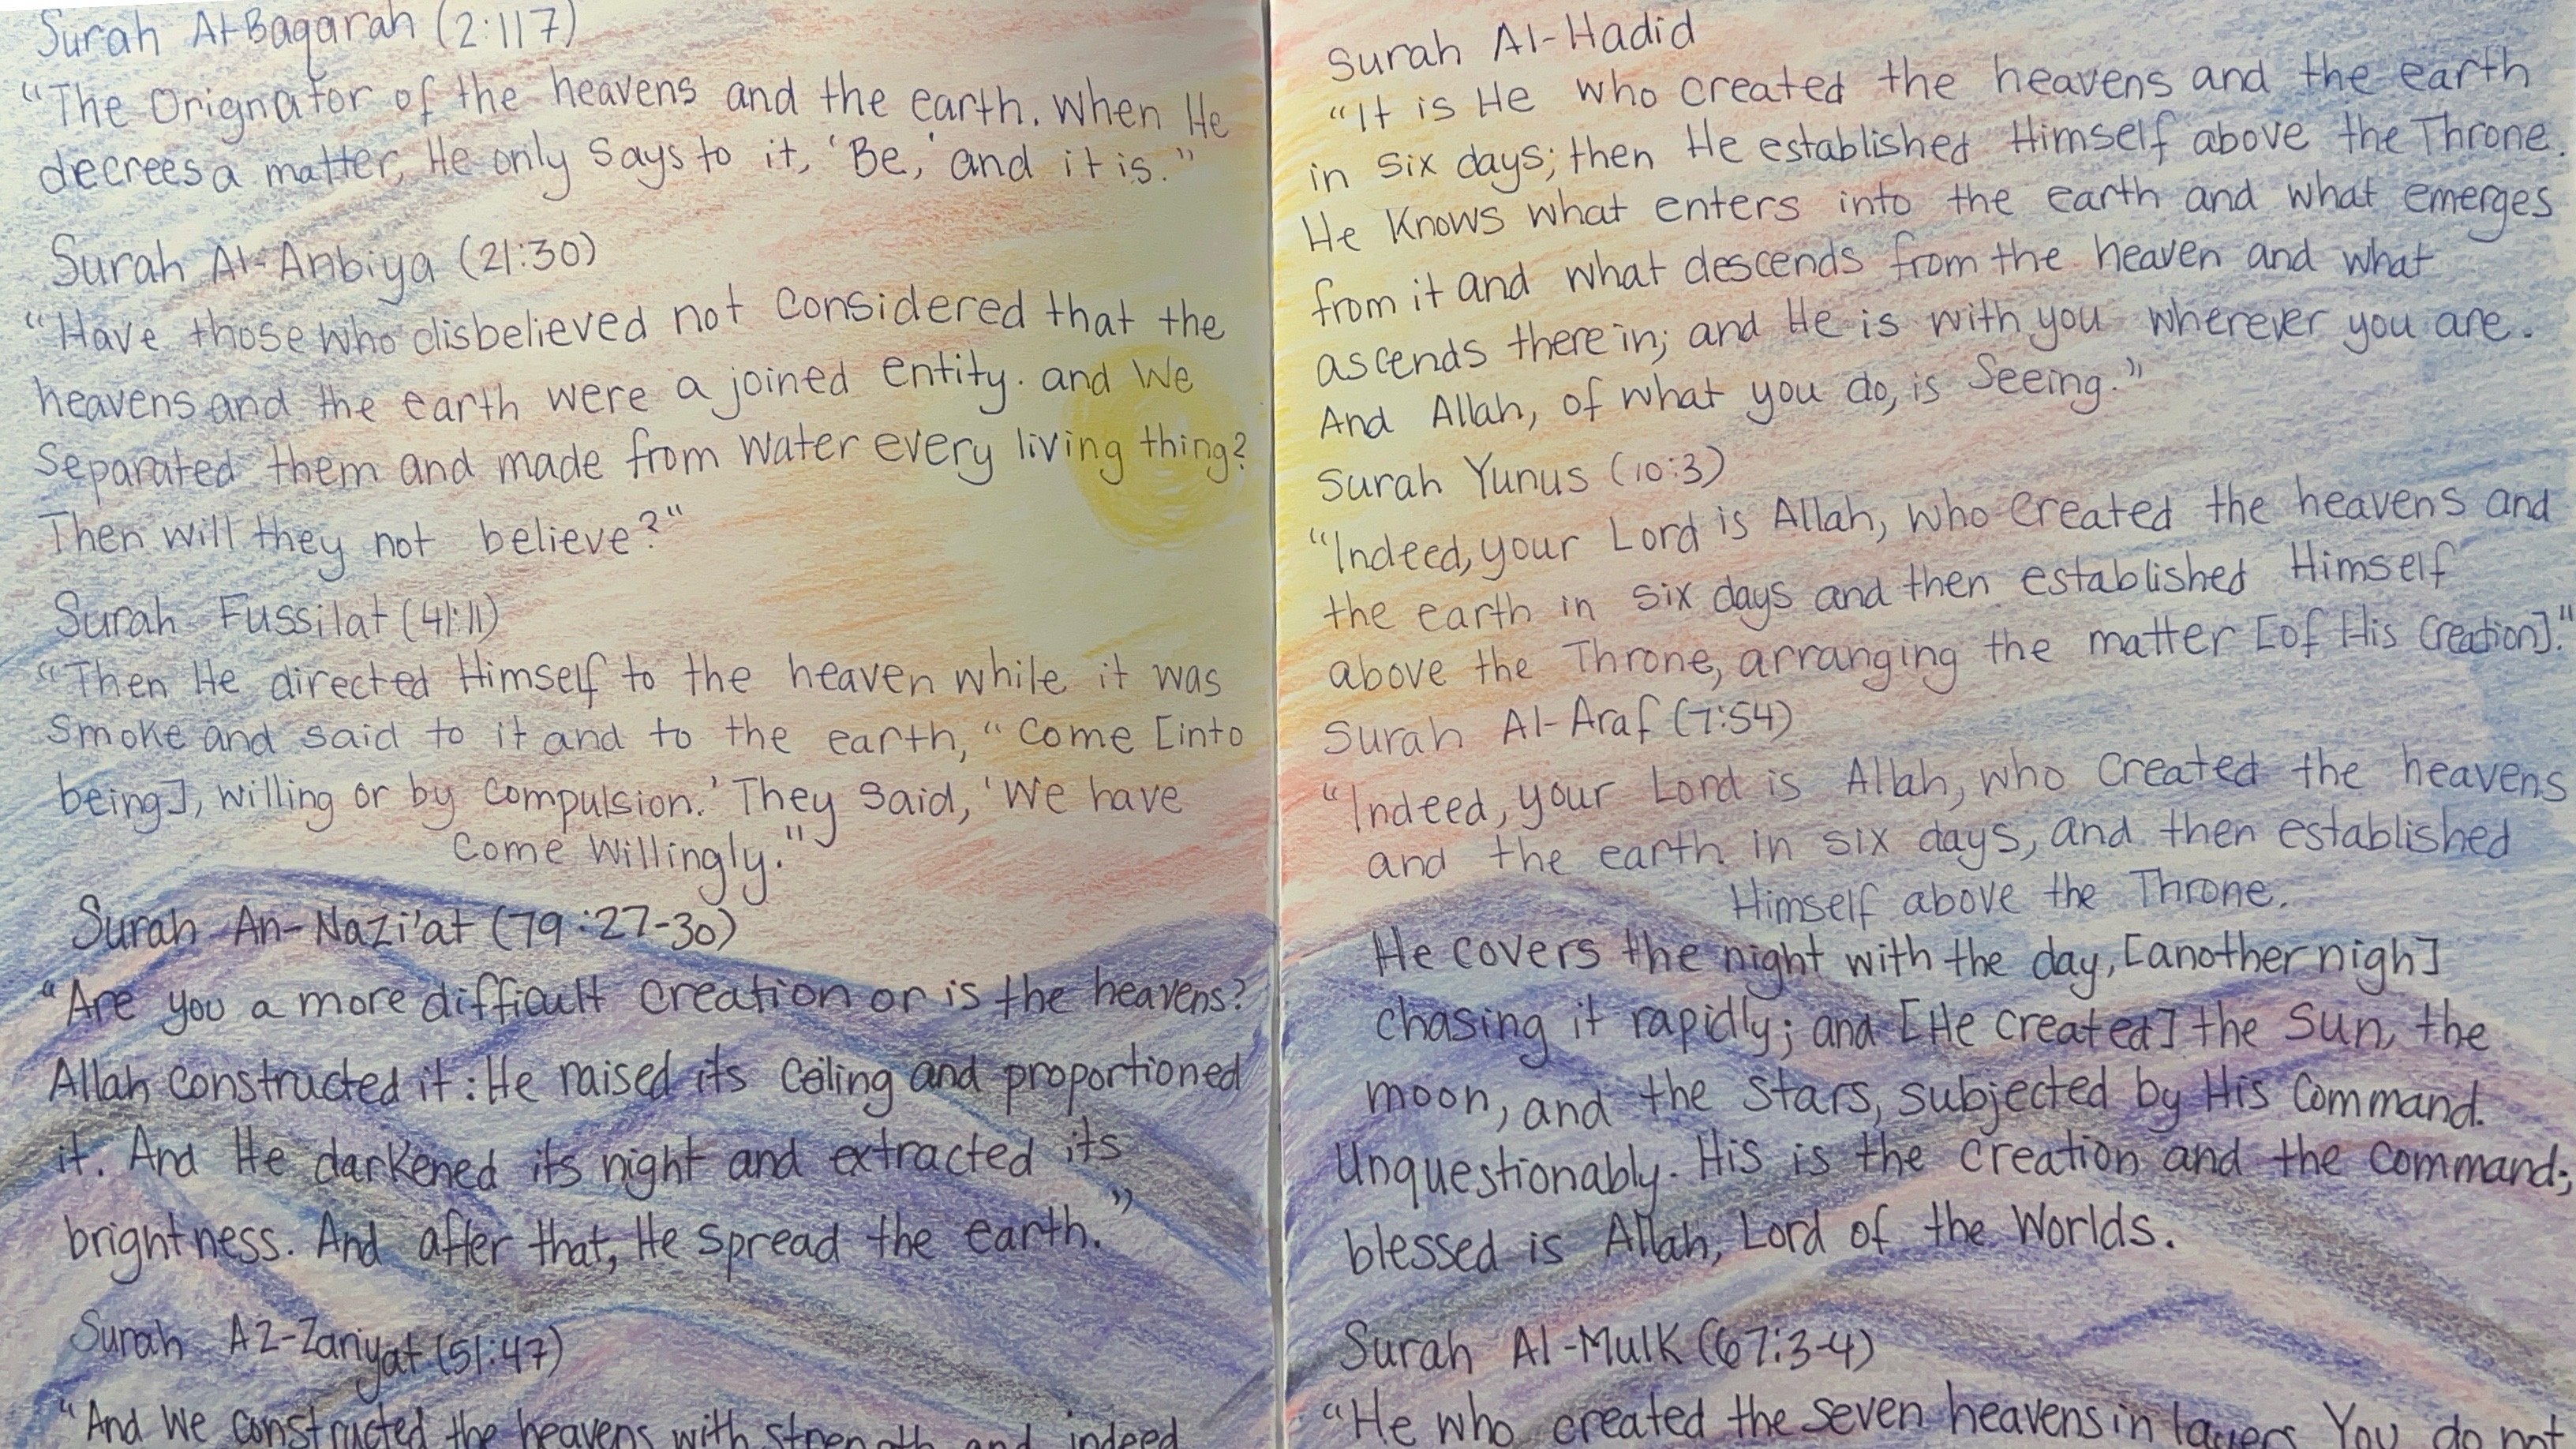 Surah Al-Baqarah (2:117)
"The Orignator of the heavens and the earth. When He
decrees a matter, He only says to it, 'Be,' and it is."
Surah Al-Anbiya (21:30)
"Have those who disbelieved not considered that the
heavens and the earth were a joined entity. and We
Separated them and made from water every living thing?
Then will they not believe?"
Surah Fussilat (41:11)
"Then He directed Himself to the heaven while it was
smoke and said to it and to the earth, "Come [into
being], willing or by compulsion.' They said, 'We have
Come willingly."
Surah An-Nazi'at (79:27-30)
"Are you a more difficult creation or is the heavens?
Allah constructed it: He raised its ceiling and proportioned
it. And He darkened its night and extracted its
brightness. And after that, He spread the earth."
Surah AZ-Zariyat (51:47)
"And We constructed the heavens with strength and indeed
Surah Al-Hadid
"It is He who created the heavens and the earth
in six days; then He established Himself above the Throne.
He knows what enters into the earth and what emerges
from it and what descends from the heaven and what
ascends there in; and He is with you wherever you are.
And Allah, of what you do, is Seeing."
Surah Yunus (10:3)
"Indeed, your Lord is Allah, who created the heavens and
the earth in six days and then established Himself
above the Throne, arranging the matter [of His creation]."
Surah Al-Araf (7:54)
"Indeed, your Lord is Allah, who created the heavens
and the earth in six days, and then established
Himself above the Throne.
He covers the night with the day, [another nigh]
chasing it rapidly; and [He created] the sun, the
moon, and the stars, subjected by His command.
Unquestionably. His is the creation and the command;
blessed is Allah, Lord of the Worlds.
Surah Al-Mulk (67:3-4)
"He who created the seven heavens in layers. You do not